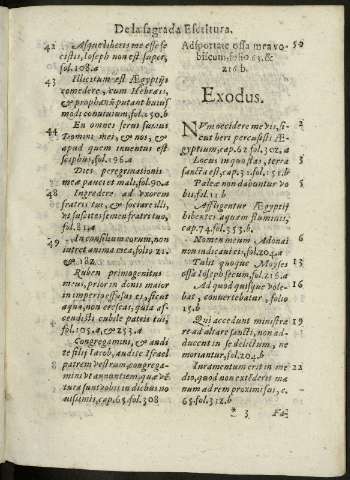 De la sagrada Escritura.
42 Absque liberis me esse fe
cistis, Ioseph non est super,
fol.108.a
43 Illicitum est Ægyptijs
comedere, cum Hebræis,
& prophanũ putant huius
modi conuiuium, fol.250.b
44 En omnes serui sumus
Domini mei, & nos, &
apud quem inuentus est
scyphus, fol.196.a
Dies peregrinationis
meæ pauci et mali, fol.90.a
48 Ingredere ad vxorem
fratris tui, & sociare illi,
vt suscites semen fratri tuo,
fol.81.a
49 In consilium eorum, non
intret anima mea, folio 21.
& 182.
Ruben primogenitus
meus, prior in donis maior
in imperio effusus es, sicut
aqua, non crescas, quia as-
cendisti cubile patris tui,
fol.103.a, & 253.a
Congregamini, & audi
te filij Iacob, audite Israel
patrem vestrum, congrega-
mini vt annuntiem quæ vẽ
tura sunt vobis in diebus no
uissimis, cap.63.fol.308
Asportate ossa mea vo- 50
biscum, folio 63. &
216.b.
Exodus.
NVm occidere me vis, si- 2
cut heri percussisti Æ
gyptium, cap.62.fol.302.a
Locus in quo stas, terra 3
sancta est, cap.31.fol.151.b
Paleæ non dabuntur vo 5
bis, fol.11.b
Affligentur Ægyptij
bibentes aquam fluminis,
cap.74.fol.353.b.
Nomen meum, Adonai 6
non indicaui eis, fol.204.a
Tulit quoque Moyses 13
ossa Ioseph secum, fol.216.a
Ad quod quisque vole- 16
bat, conuertebatur, folio
15.b
Qui accedunt ministrare 19
re ad altare sancti, non ad-
ducent in se delictum, ne
moriantur, fol.204.b
Iuramentum erit in me 22
dio, quod non extẽderit ma
num ad rem proximi sui, c.
65.fol.312.b
* 3 Fa-